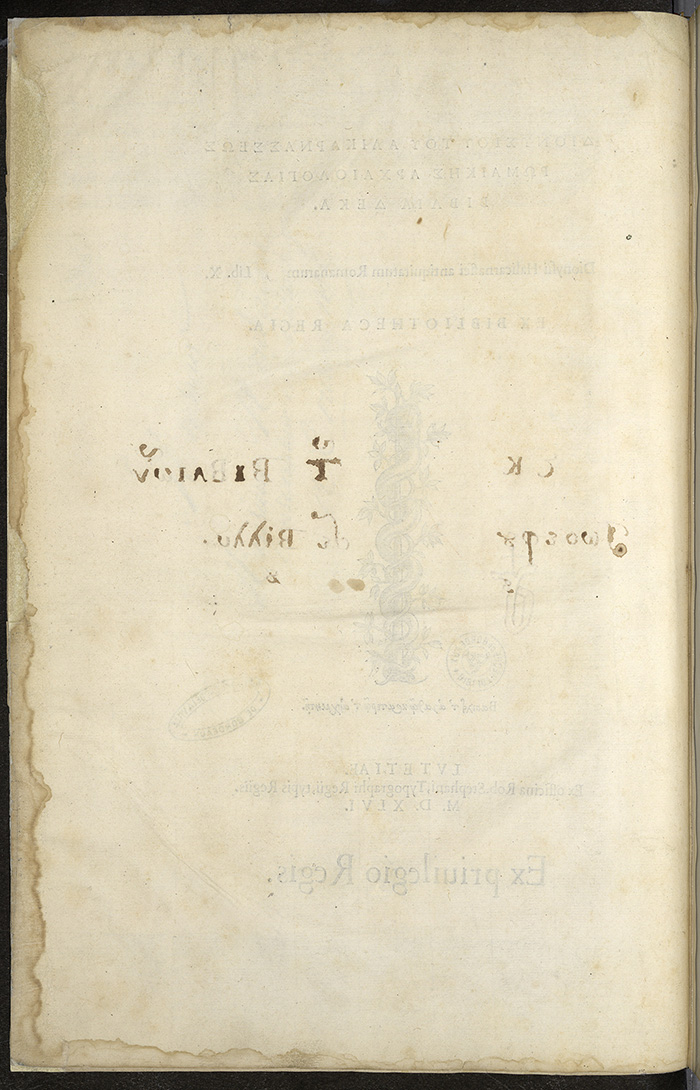 ΔΙΟΝΥΣΙΟΥ ΤΟΥ ΑΛΙΚΑΡΝΑΣΣΕΩΣ
ΡΩΜΑΙΚΗΣ ΑΡΧΑΙΟΛΟΓΙΑΣ
ΒΙΒΛΙΑ ΔΕΚΑ.
Dionysii Halicarnassei antiquitatum Romanarum, Lib. X.
EX BIBLIOTHECA REGIA.
εκ τῶ Βιβλιῶν
Ιωσεφου δε Βιλλυ.
LVTETIAE.
Ex officina Rob. Stephani, Typographi Regii, typis Regiis.
M. D. XLVI.
Ex priuilegio Regis.